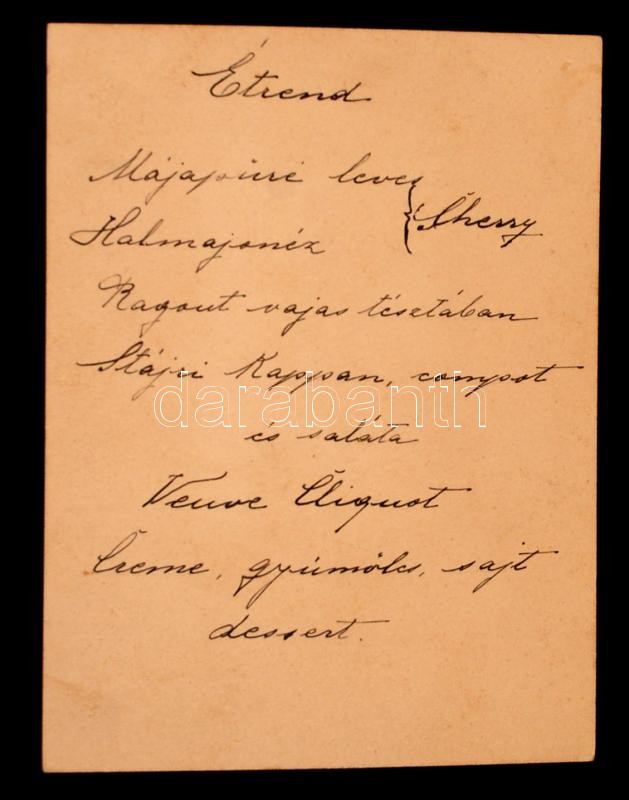 Étrend
Májapüré leves
Sherry
Halmajonéz
Ragout vajas tésztában
Stájri Kappan, compot
darabanth
és saláta
Veuve Cliquot
Creme, gyümölcs, sajt
dessert.